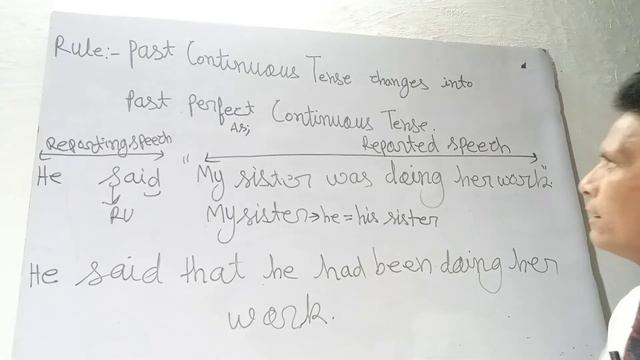 Rule:- Past Continuous Tense changes into
Past perfect Continuous Tense.
As;
Reporting speech Reported speech
He said "My sister was doing her work."
RV My sister→he=his sister
He said that he had been doing her
work.